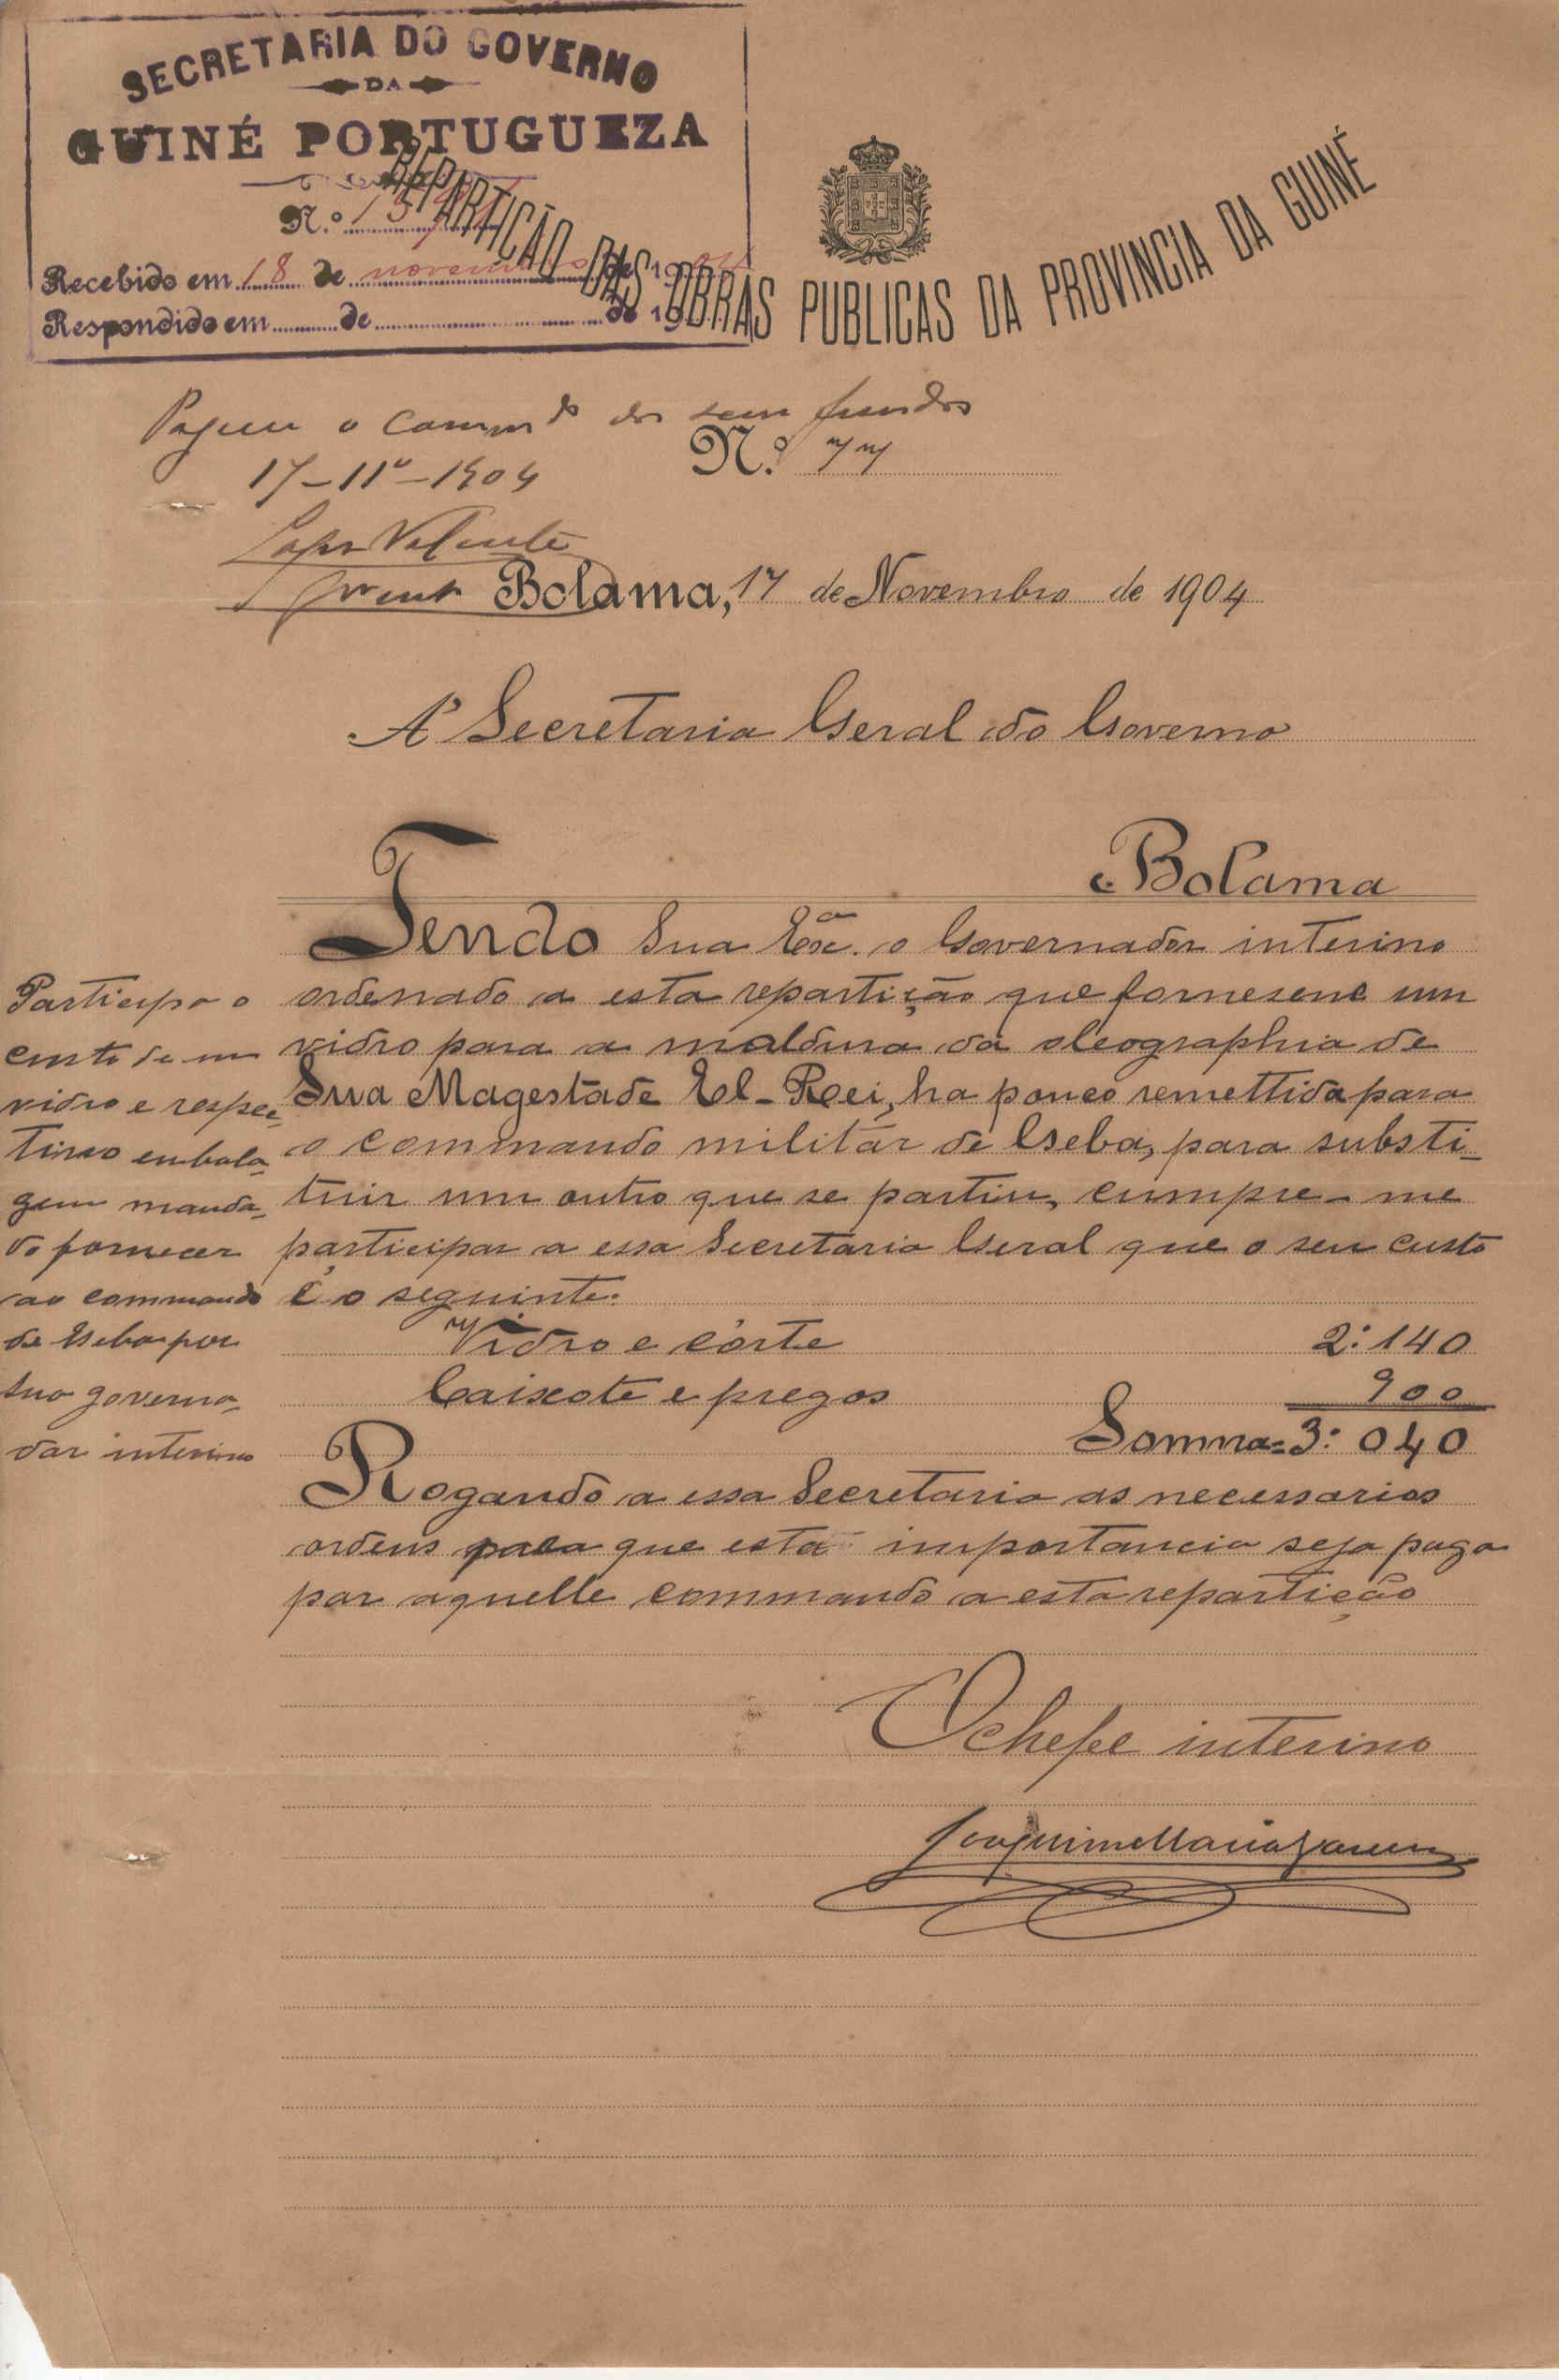 SECRETARIA DO GOVERNO
DA
GUINÉ PORTUGUEZA
N.º
Recebido em 18 de novembro de 1904
Respondido em de de 19
REPARTIÇÃO DAS OBRAS PUBLICAS DA PROVINCIA DA GUINÉ
Pague o Commdo dos seus fundos
N.º 77
17-11º-1904
Bolama, 17 de Novembro de 1904
A' Secretaria Geral do Governo
Bolama
Tendo Sua Exª. o Governador interino
ordenado a esta repartição que fornecesse um
vidro para a moldura da oleographia de
Sua Magestade El-Rei, ha pouco remettida para
o commando militar de Geba, para substi-
tuir um outro que se partiu, cumpre-me
participar a essa Secretaria Geral que o seu custo
é o seguinte:
Vidro e córte 2:140
Caixote e pregos 900
Somma = 3:040
Rogando a essa Secretaria as necessarias
ordens para que esta importancia seja paga
por aquelle commando a esta repartição
Participa o
custo de um
vidro e respec-
tivo embala-
gem manda-
do fornecer
ao commando
de Geba por
sua governa-
dor interino
O chefe interino
Joaquim Maria